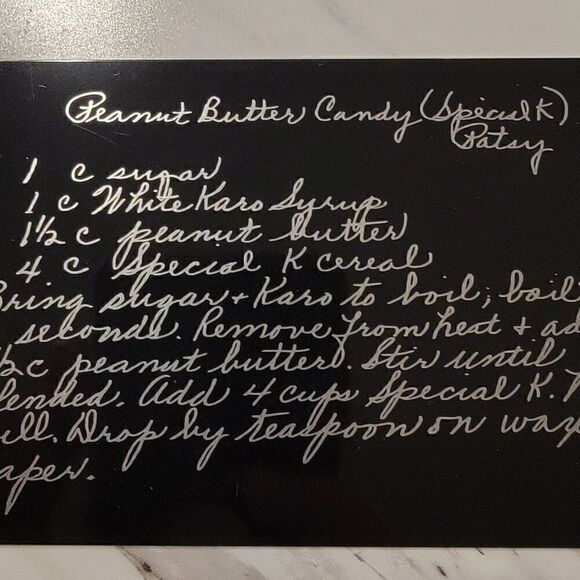 Peanut Butter Candy (Special K)
Patsy
1 c sugar
1 c White Karo Syrup
1½ c peanut butter
4 c Special K cereal
Bring sugar + Karo to boil; boil
seconds. Remove from heat + ad
½ c peanut butter. Stir until
lended. Add 4 cups Special K.
ell. Drop by teaspoon on wax
aper.